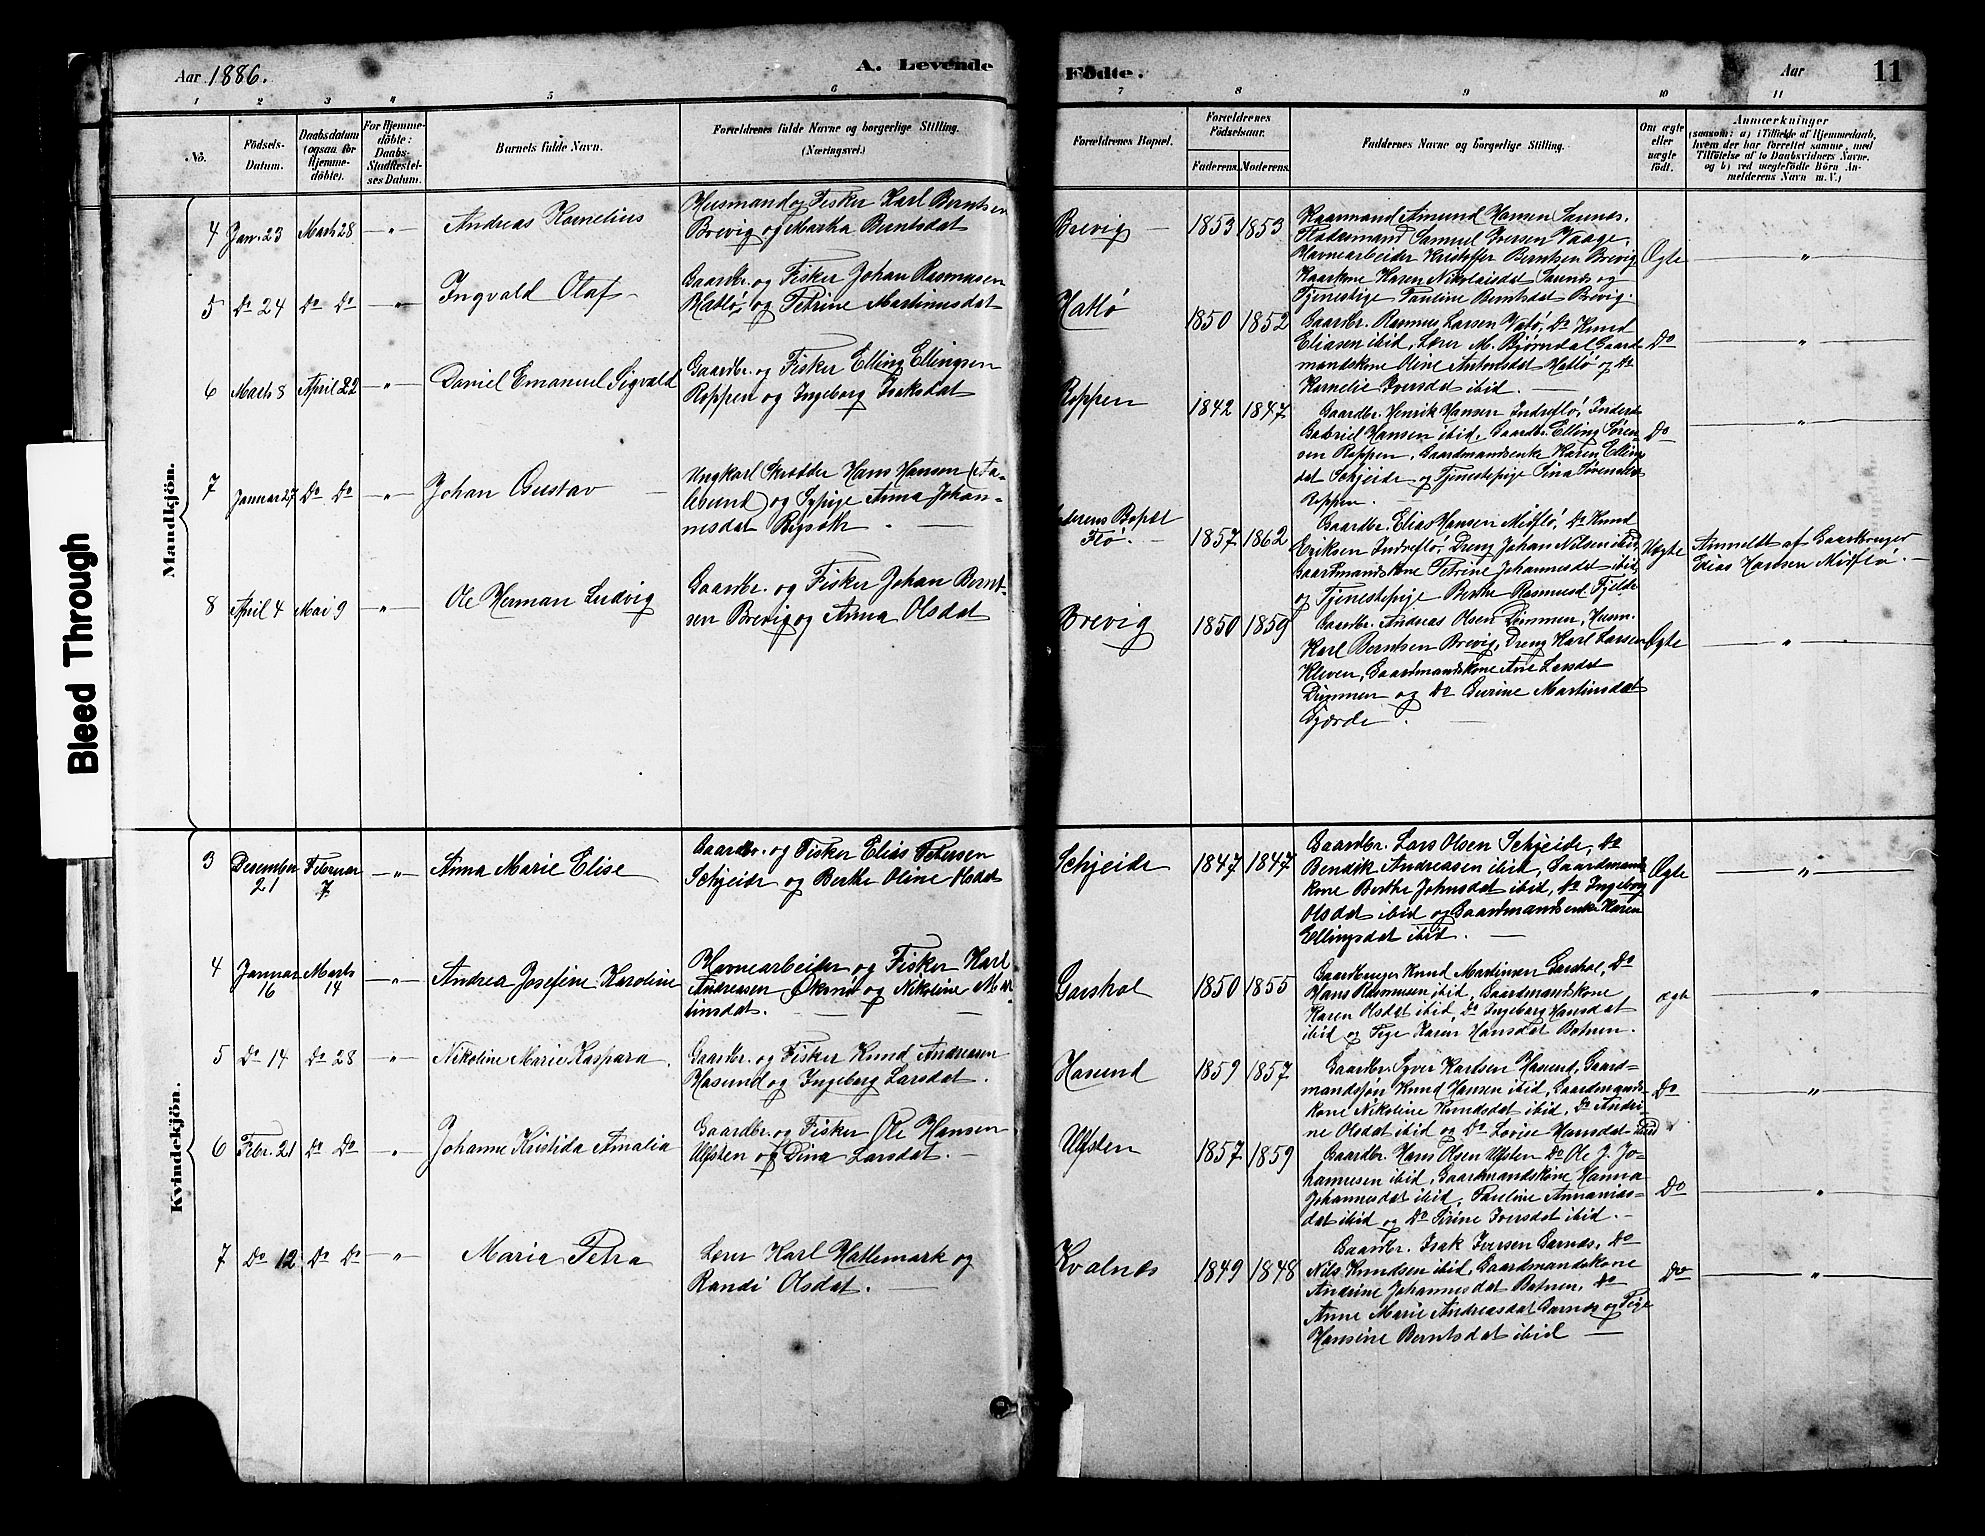 Aar 1886.
A. Levende
Fødte.
Aar
11
1 2 3 4 5 6 7 8 9 10 11
No.
Fødsels-
Datum.
Daabsdatum
(ogsaa for
Hjemme-
døbte).
For Hjemme-
døbte:
Daabs-
Stadfæstel-
ses Datum.
Barnets fulde Navn.
Forældrenes fulde Navne og borgerlige Stilling.
(Næringsvei.)
Forældrenes Bopæl.
Forældrenes
Fødselsaar.
Faderens. Moderens.
Faddernes Navne og borgerlige Stilling.
Om ægte
eller
uægte
født.
Anmærkninger
(saasom: a) i Tilfælde af Hjemmedaab,
hvem der har forrettet samme, med
Tilføielse af to Daabsvidners Navne,
og b) ved uægtefødte Børn An-
melderens Navn m. V.)
Bleed Through
Mandkjön.
4 Jan. 23 Marts 28 " Andreas Kornelius
Husmand og Fisker Karl Berntsen
Brevig og Martha Berntsdat
Brevig 1853 1853
Kaarmand Amund Hansen Saunes,
Samuel Iversen Vaage,
Havnearbeider Kristoffer Berntsen Brevig
Kaarkone Karen Nikolaisdat Saunes og
Tjenestpige Pauline Berntsdat Brevig.
Ægte "
5 Do 24 Do Do " Ingvald Olaf
Gaardbr. og Fisker Johan Rasmusen
Hatlø og Petrine Martinusdat
Hatlø 1850 1852
Gaardbr. Rasmus Larsen Hatlø, Do Knud
Eliasen ibid, Lærer M. Bjørndal, Gaard-
mandskone Oline Antonsdat Hatlø og Do
Kornelie Iversdat ibid.
Do "
6 Marts 8 April 22 " Daniel Emanuel Sigvald
Gaardbr. og Fisker Elling Ellingsen
Roppen og Ingeborg Isaksdat
Roppen 1842 1847
Gaardbr. Henrik Hansen Indreflø, Inderst
Gabriel Hansen ibid, Gaardbr. Elling Søren-
sen Roppen, Gaardmandsenke Karen Ellings-
dat Schjeide og Tjenestepige Sina Sørensdat
Roppen.
Do "
7 Januar 27 Do Do " Johan Gustav
Ungkarl Skrædder Hans Hansen (Aa-
lesund) og Sypige Anna Johan-
nesdat
Moderens Bopæl
Flø. 1857 1862
Gaardbr. Elias Hansen Midflø, Do Knud
Eriksen Indreflø, Dreng Johan Nilsen ibid,
Gaardmandskone Petrine Johannesdat ibid
og Tjenestepige Berthe Rasmusd. Fjelde
Uægte
Anmeldt af Gaardbruger
Elias Hansen Midflø.
8 April 4 Mai 9 " Ole Herman Ludvig
Gaardbr. og Fisker Johan Bernt-
sen Brevig og Anna Olsdat
Brevig 1850 1859
Gaardbr. Andreas Olsen Dimmen, Husm.
Karl Berntsen Brevig, Dreng Karl Larsen
Kleven, Gaardmandskone Ane Larsdat
Dimmen og Do Gurine Martinsdat
Gjærde.
Ægte "
Kvindekjön.
3 Desember
21 Februar
7 " Anna Marie Elise
Gaardbr. og Fisker Elias Petersen
Schjeide og Berthe Oline Olsdat
Schjeide 1847 1847
Gaardbr. Lars Olsen Schjeide, Do
Bendik Andreasen ibid, Gaardmands-
kone Berthe Johnsdat ibid, Do Ingeborg
Olsdat ibid og Gaardmandsenke Karen
Ellingsdat ibid.
Ægte "
4 Januar
16 Marts
14 " Andrea Josefine Karoline
Havnearbeider og Fisker Karl
Andreasen og Nikoline Mar-
tinsdat.
Garshol 1850 1855
Gaardbruger Knud Martinsen Garshol, Do
Hans Rasmusen ibid, Gaardmandskone
Karen Olsdat ibid, Do Ingeborg Hansdat
ibid og Pige Karen Hansdat Botnen.
Ægte "
5 Do 14 Do 28 " Nikoline Marie Kaspara.
Gaardbr. og Fisker Knud Andreasen
Hasund og Ingeborg Larsdat.
Hasund 1859 1857
Gaardbr. Syver Karlsen Hasund, Gaard-
mandssøn Knud Hansen ibid, Gaardmands-
kone Nikoline Knudsdat ibid, Do Andri-
ne Olsdat ibid og Do Lovise Hansdat ibid
Do "
6 Febr. 21 Do Do " Johanne Kristida Amalia
Gaardbr. og Fisker Ole Hansen
Ulfsten og Dina Larsdat.
Ulfsten 1857 1859
Gaardbr. Hans Olsen Ulfsten Do Ole J. Jo-
hannesen ibid, Gaardmandskone Hanna
Johannesdat ibid, Pauline Annanias-
dat ibid og Do Sirine Iversdat ibid.
Do "
7 Do 12 Do Do " Maria Petra
Lærer Karl Hatlemark og
Randi Olsdat.
Kvalnæs 1849 1848
Gaardbr. Isak Iversen Garnæs, Do
Nils Knudsen ibid, Gaardmandskone
Andrine Johannesdat Botnen, Do
Anne Marie Andreasdat Garnæs og Pige
Hansine Berntsdat ibid
Do "